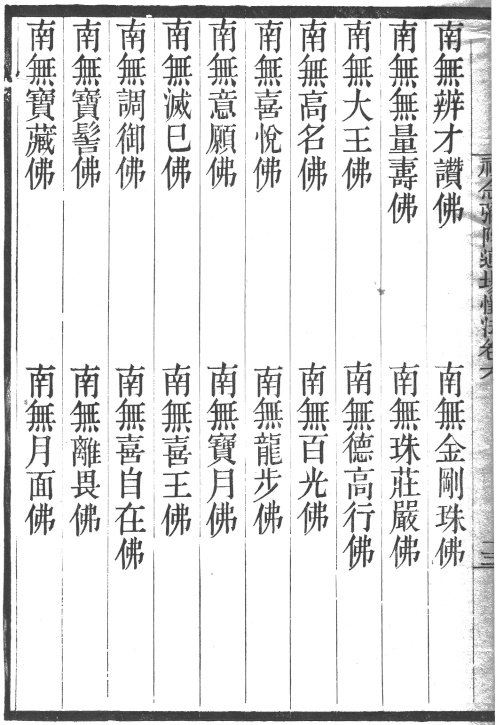 南無辨才讚佛　南無金剛珠佛
南無無量壽佛　南無珠莊嚴佛
南無大王佛　南無德高行佛
南無高名佛　南無百光佛
南無喜悅佛　南無龍步佛
南無意願佛　南無寶月佛
南無滅巳佛　南無喜王佛
南無調御佛　南無喜自在佛
南無寶髻佛　南無離畏佛
南無寶藏佛　南無月面佛